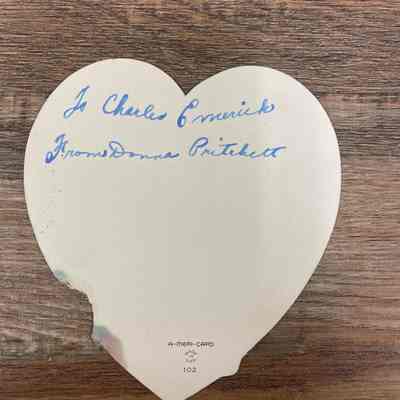 To Charles Emerick
From Donna Pritchett
A-MERI-CARD
102